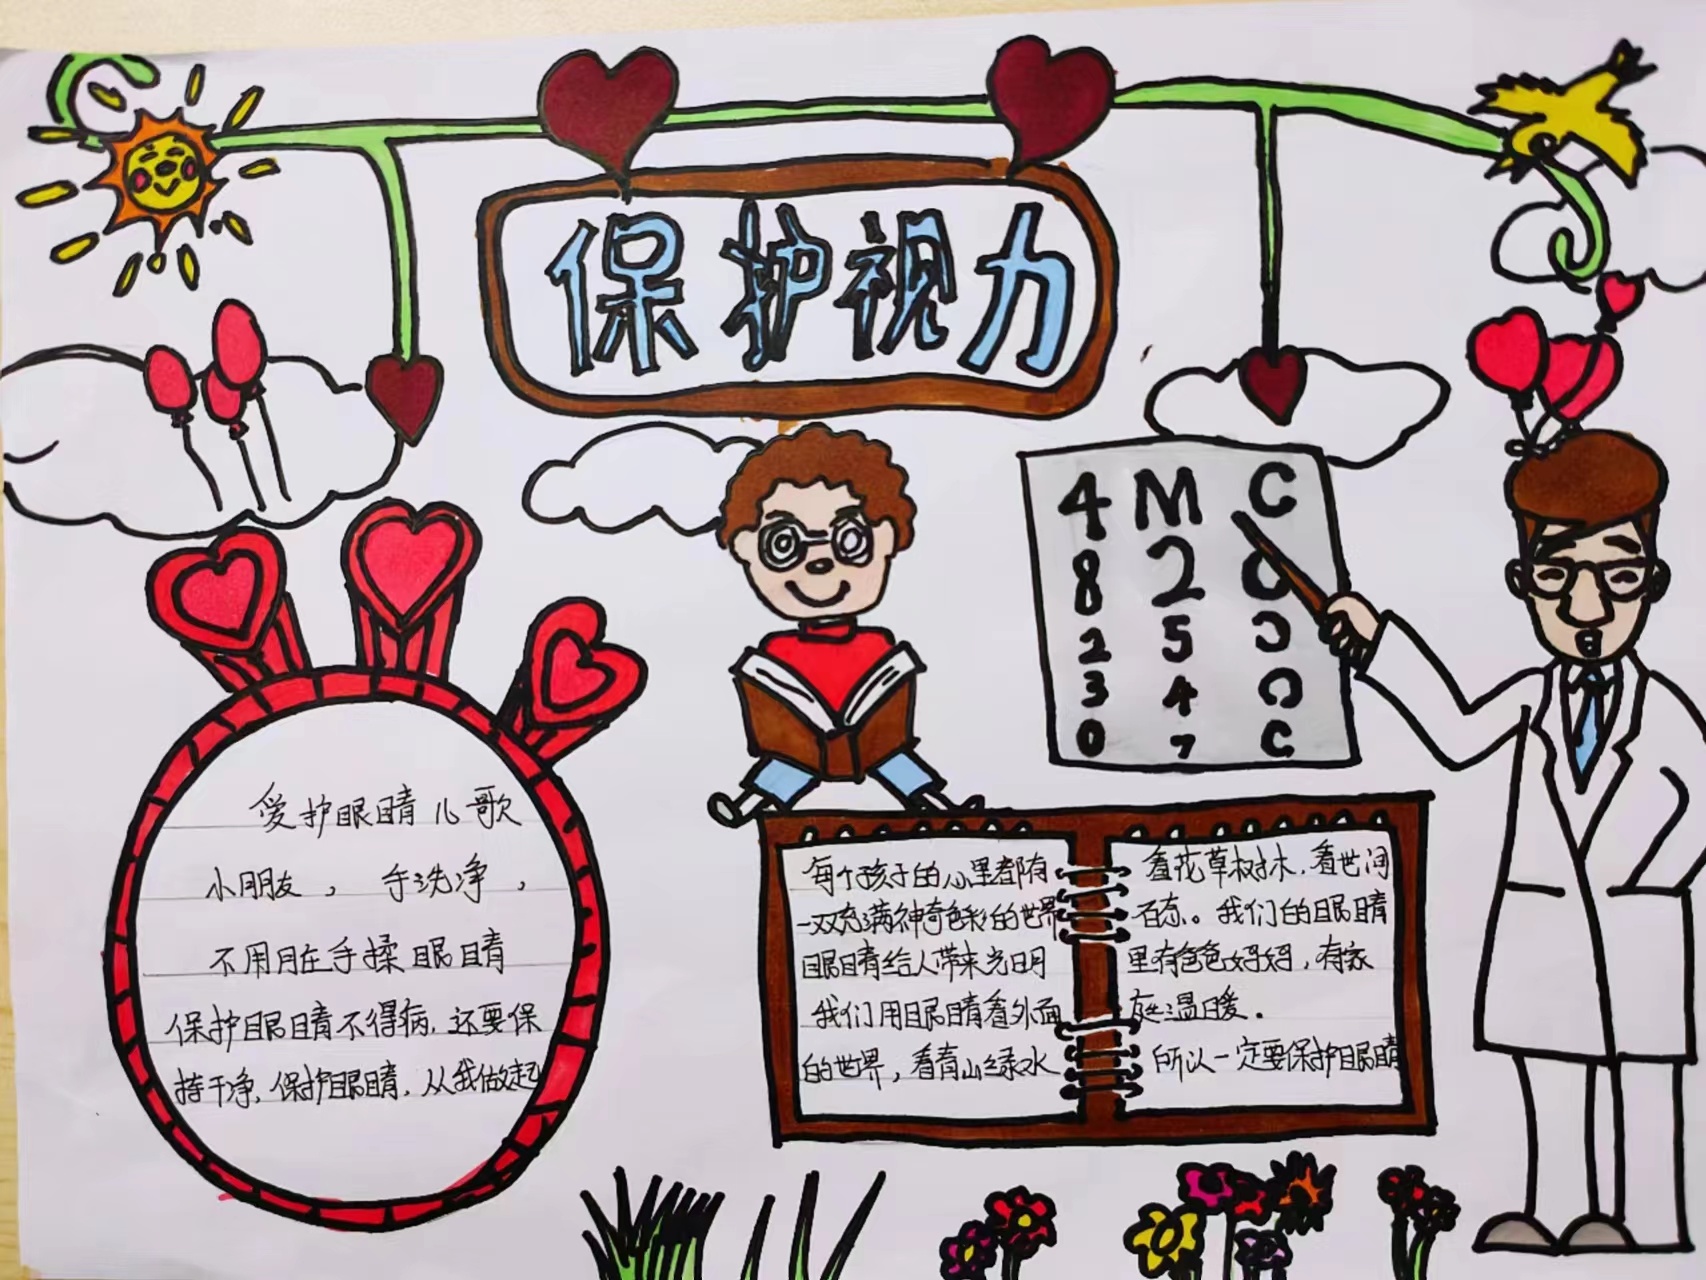 保护视力
4 M C
8 2 C
2 5 C
3 4 C
0 7 C
爱护眼睛儿歌
小朋友，手洗净，
不用用在手揉眼睛
保护眼睛不得病，还要保
持干净，保护眼睛，从我做起
每个孩子的心里都有
一双充满神奇色彩的世界
眼睛给人带来光明
我们用眼睛看外面
的世界，看青山绿水
看花草树木，看世间
百态。我们的眼睛
里有爸爸妈妈，有家
庭温暖。
所以一定要保护眼睛